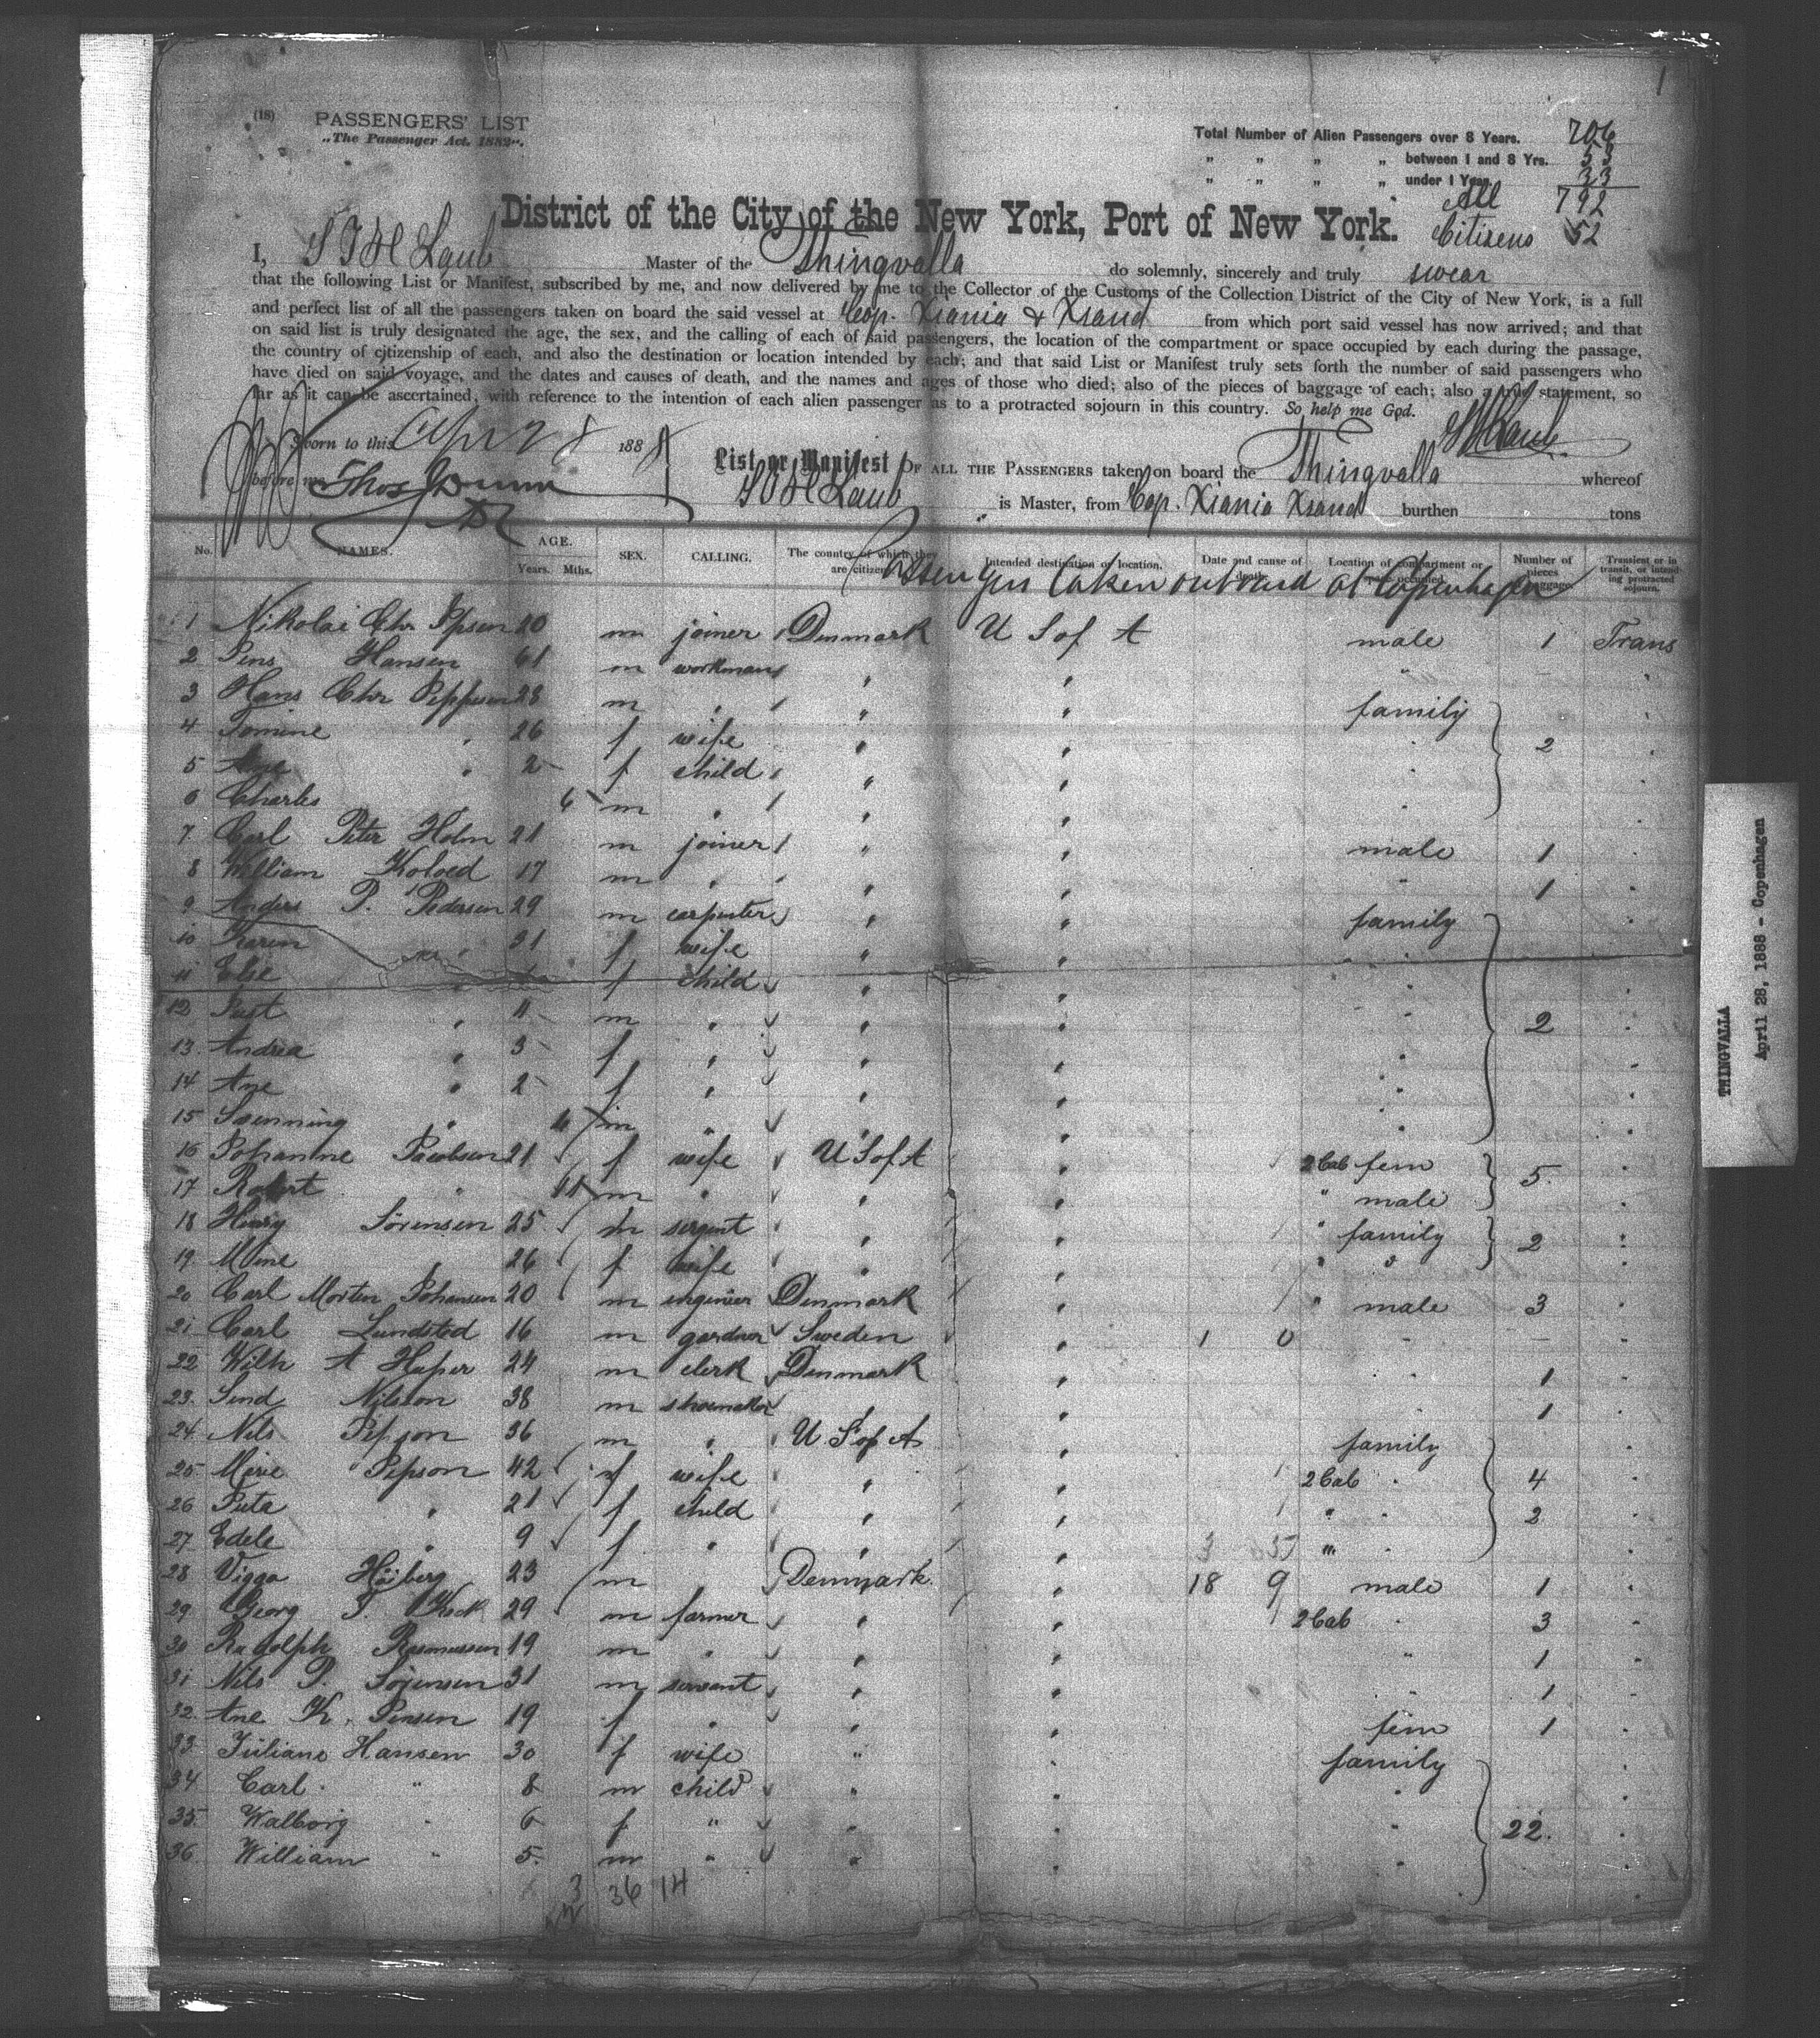 1
(18) PASSENGERS' LIST
„The Passenger Act, 1882".
Total Number of Alien Passengers over 8 Years. 706
„ „ „ „ between 1 and 8 Yrs. 53
„ „ „ „ under 1 Year. 33
All 792
Citizens 52
District of the City of the New York, Port of New York.
I, Laub Master of the Thingvalla do solemnly, sincerely and truly swear
that the following List or Manifest, subscribed by me, and now delivered by me to the Collector of the Customs of the Collection District of the City of New York, is a full
and perfect list of all the passengers taken on board the said vessel at Cop. Xiania & Xsand from which port said vessel has now arrived; and that
on said list is truly designated the age, the sex, and the calling of each of said passengers, the location of the compartment or space occupied by each during the passage,
the country of citizenship of each, and also the destination or location intended by each; and that said List or Manifest truly sets forth the number of said passengers who
have died on said voyage, and the dates and causes of death, and the names and ages of those who died; also of the pieces of baggage of each; also a true statement, so
far as it can be ascertained, with reference to the intention of each alien passenger as to a protracted sojourn in this country. So help me God.
Sworn to this Apr 28 1888
before me Thos
List or Manifest OF ALL THE PASSENGERS taken on board the Thingvalla whereof
Laub is Master, from Cop. Xiania Xsand burthen tons
No. NAMES. AGE. Years. Mths. SEX. CALLING. The country of which they are citizens. Intended destination or location. Date and cause of death. Location of compartment or space occupied. Number of pieces baggage. Transient or in transit, or intending protracted sojourn.
Passengers taken onboard at Copenhagen
1 Nikolai Chr. Jepsen 20 m joiner Denmark U S of A male 1 Trans
2 Jens Hansen 61 m workman " " "
3 Hans Chr Jeppesen 28 m " " " family
4 Jomine " 26 f wife " " " 2
5 Ane " 2 f child " " "
6 Charles 6 m " " " "
7. Carl Peter Holm 21 m joiner " " male 1
8 William Koloed 17 m " " " " 1
9 Anders P. Pedersen 29 m carpenter " " family
10 Karen " 31 f wife " " "
11 Else f child " " "
12 Just " 11 m " " " " 2
13. Andrea " 3 f " " " "
14 Ane " 2 f " " " "
15 " m " " " "
16 Johanne Jacobsen 21 f wife U S of A " 2 Cab fem 5.
17 Robert " 11 m " " " " male
18 Henry Sörensen 25 m " " " family 2
19. Mine " 26 f wife " " " "
20 Carl Morten Johansen 20 m engineer Denmark " " male 3
21 Carl Lundsted 16 m gardner Sweden " 1 0 "
22 Wilh A 24 m clerk Denmark " " 1
23. Nilsson 38 m shoemaker " " 1
24. Nils Jepson 36 m " U S of A " family
25. Marie Jepson 42 f wife " " 2 Cab " 4
26 " 21 f child " " " " 2
27. Edele " 9 f " " " " "
28 Viggo Höiberg 23 m " Denmark. " 18 9 male 1
29 Georg T. Kock 29 m farmer " " 2 Cab " 3
30 Rudolph Rasmussen 19 m " " " " 1
31 Nils P. Sörensen 31 m servant " " " 1
32. Ane K. Jensen 19 f " " " fem 1
33. Juliane Hansen 30 f wife " " family
34 Carl " 8 m child " " "
35. Walborg " 6 f " " " " 22.
36. William " 5. m " " " "
3 36 14
THINGVALLA
April 28, 1888 - Copenhagen